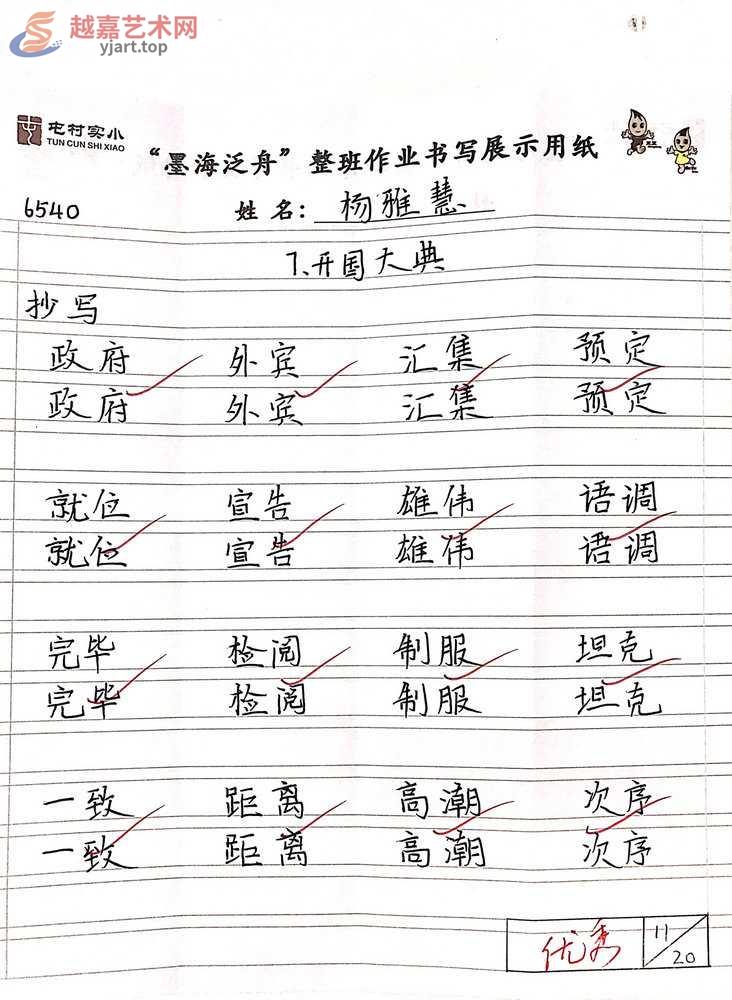 越嘉艺术网
yjart.top
屯村实小
TUN CUN SHI XIAO
“墨海泛舟”整班作业书写展示用纸
6540 姓名: 杨雅慧
7.开国大典
抄写
政府 外宾 汇集 预定
政府 外宾 汇集 预定
就位 宣告 雄伟 语调
就位 宣告 雄伟 语调
完毕 检阅 制服 坦克
完毕 检阅 制服 坦克
一致 距离 高潮 次序
一致 距离 高潮 次序
优秀 11/20